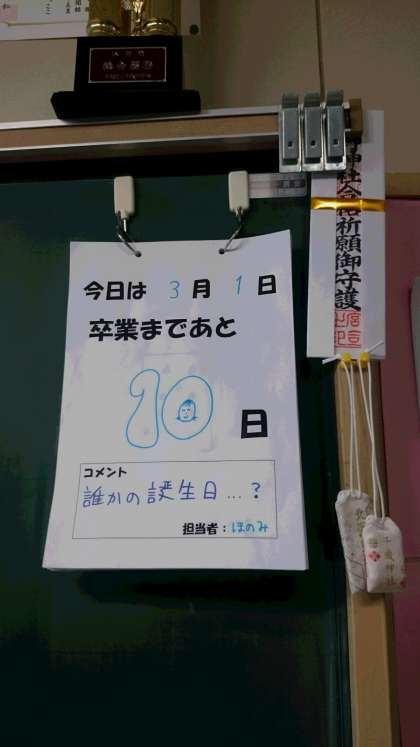 今日は 3月 1日
卒業まであと
10日
コメント
誰かの誕生日…?
担当者:ほのみ
神社合格祈願御守護
千歳神社